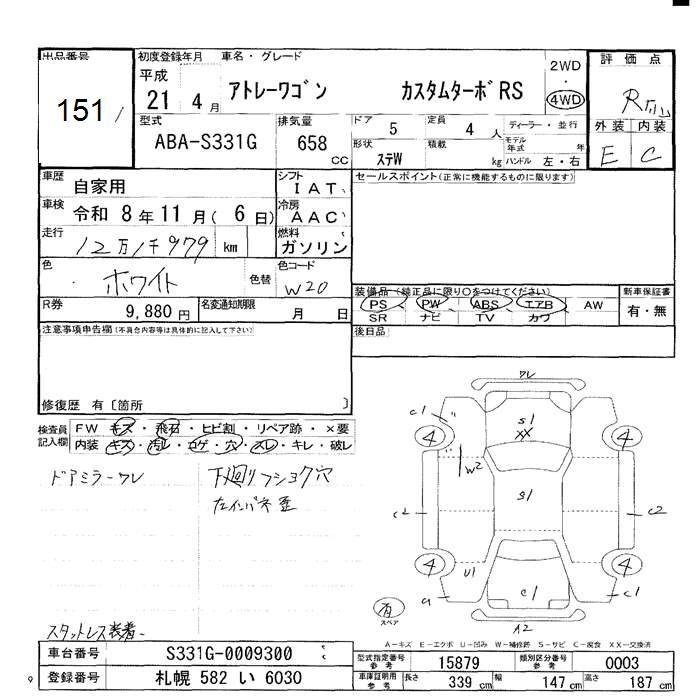 出品番号
151
初度登録年月 車名・グレード
平成 21 4月 アトレーワゴン カスタムターボRS 2WD・4WD
評価点
R
外装 内装
E C
型式 ABA-S331G
排気量 658 CC
ドア 5
定員 4 人
ディーラー・並行
形状 ステW
積載 kg
モデル年式 年
ハンドル 左・右
車歴 自家用
シフト IAT
セールスポイント(正常に機能するものに限ります)
車検 令和 8年11月(6日)
冷房 AAC
走行 12万1千979 km
燃料 ガソリン
色 ホワイト 色替
色コード W20
装備品(純正品に限り○をつけてください)
PS PW ABS エアB AW
SR ナビ TV カワ
新車保証書
有・無
R券 9,880円
名変通知期限 月 日
後日品
注意事項申告欄(不具合内容等は具体的に記入して下さい)
修復歴 有〔箇所 〕
検査員記入欄
FW キズ・飛石・ヒビ割・リペア跡・×要
内装 キズ・汚れ・コゲ・穴・スレ・キレ・破レ
ドアミラーワレ
下廻リフショク穴
左インパネ歪
スタットレス装着
ワレ
C1
S1
XX
4
4
W2
C2
S1
C2
4
4
U1
C1
A2
有
スペア
A-キズ E-エクボ U-凹み W-補修跡 S-サビ C-腐食 XX-交換済
車台番号 S331G-0009300
登録番号 札幌 582 い 6030
型式指定番号参考 15879
類別区分番号参考 0003
車庫証明用参考 長さ 339cm 幅 147cm 高さ 187cm
9